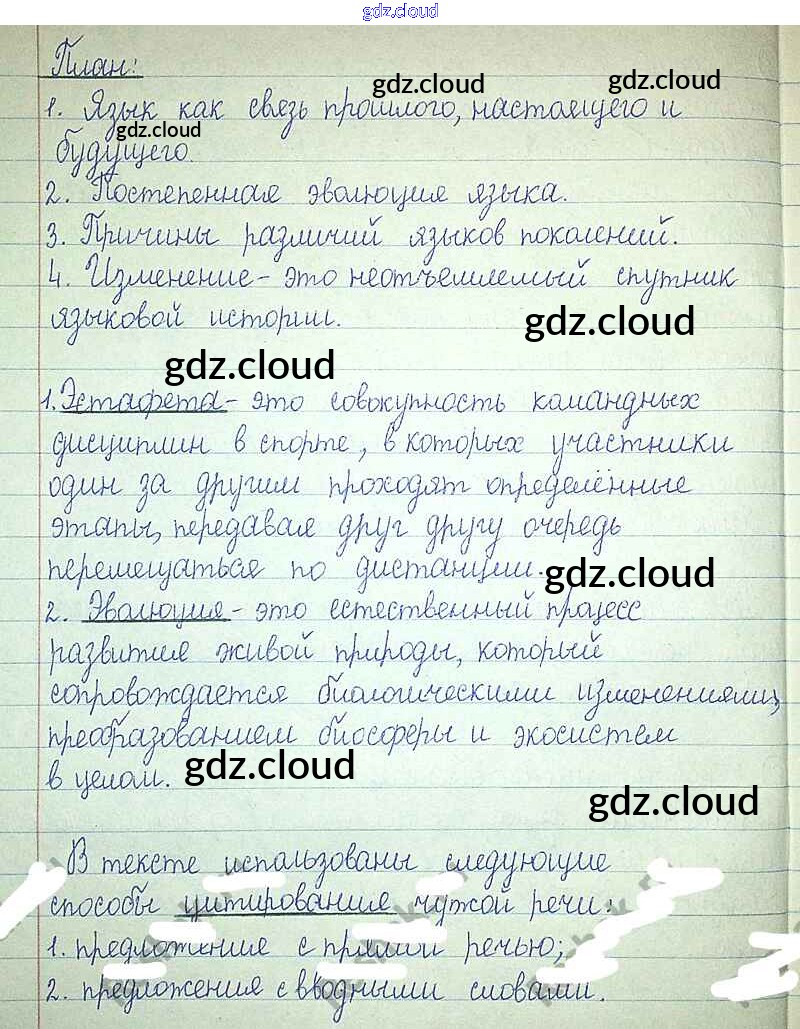 gdz.cloud
План:
gdz.cloud
gdz.cloud
1. Язык как связь прошлого, настоящего и
gdz.cloud
будущего.
2. Постепенная эволюция языка.
3. Причины различий языков поколений.
4. Изменение - это неотъемлемый спутник
языковой истории.
gdz.cloud
gdz.cloud
1. Эстафета - это совокупность командных
дисциплин в спорте, в которых участники
один за другим проходят определённые
этапы, передавая друг другу очередь
перемещаться по дистанции.
gdz.cloud
2. Эволюция - это естественный процесс
развития живой природы, который
сопровождается биологическими изменениями,
преобразованием биосферы и экосистем
в целом.
gdz.cloud
gdz.cloud
В тексте использованы следующие
способы цитирования чужой речи:
1. предложение с прямой речью;
2. предложения с вводными словами.